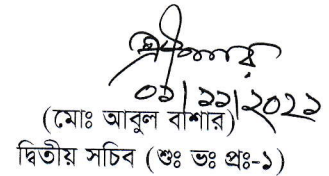 ০১/১১/২০২১
(মোঃ আবুল বাশার)
দ্বিতীয় সচিব (শুঃ ভঃ প্রঃ-১)